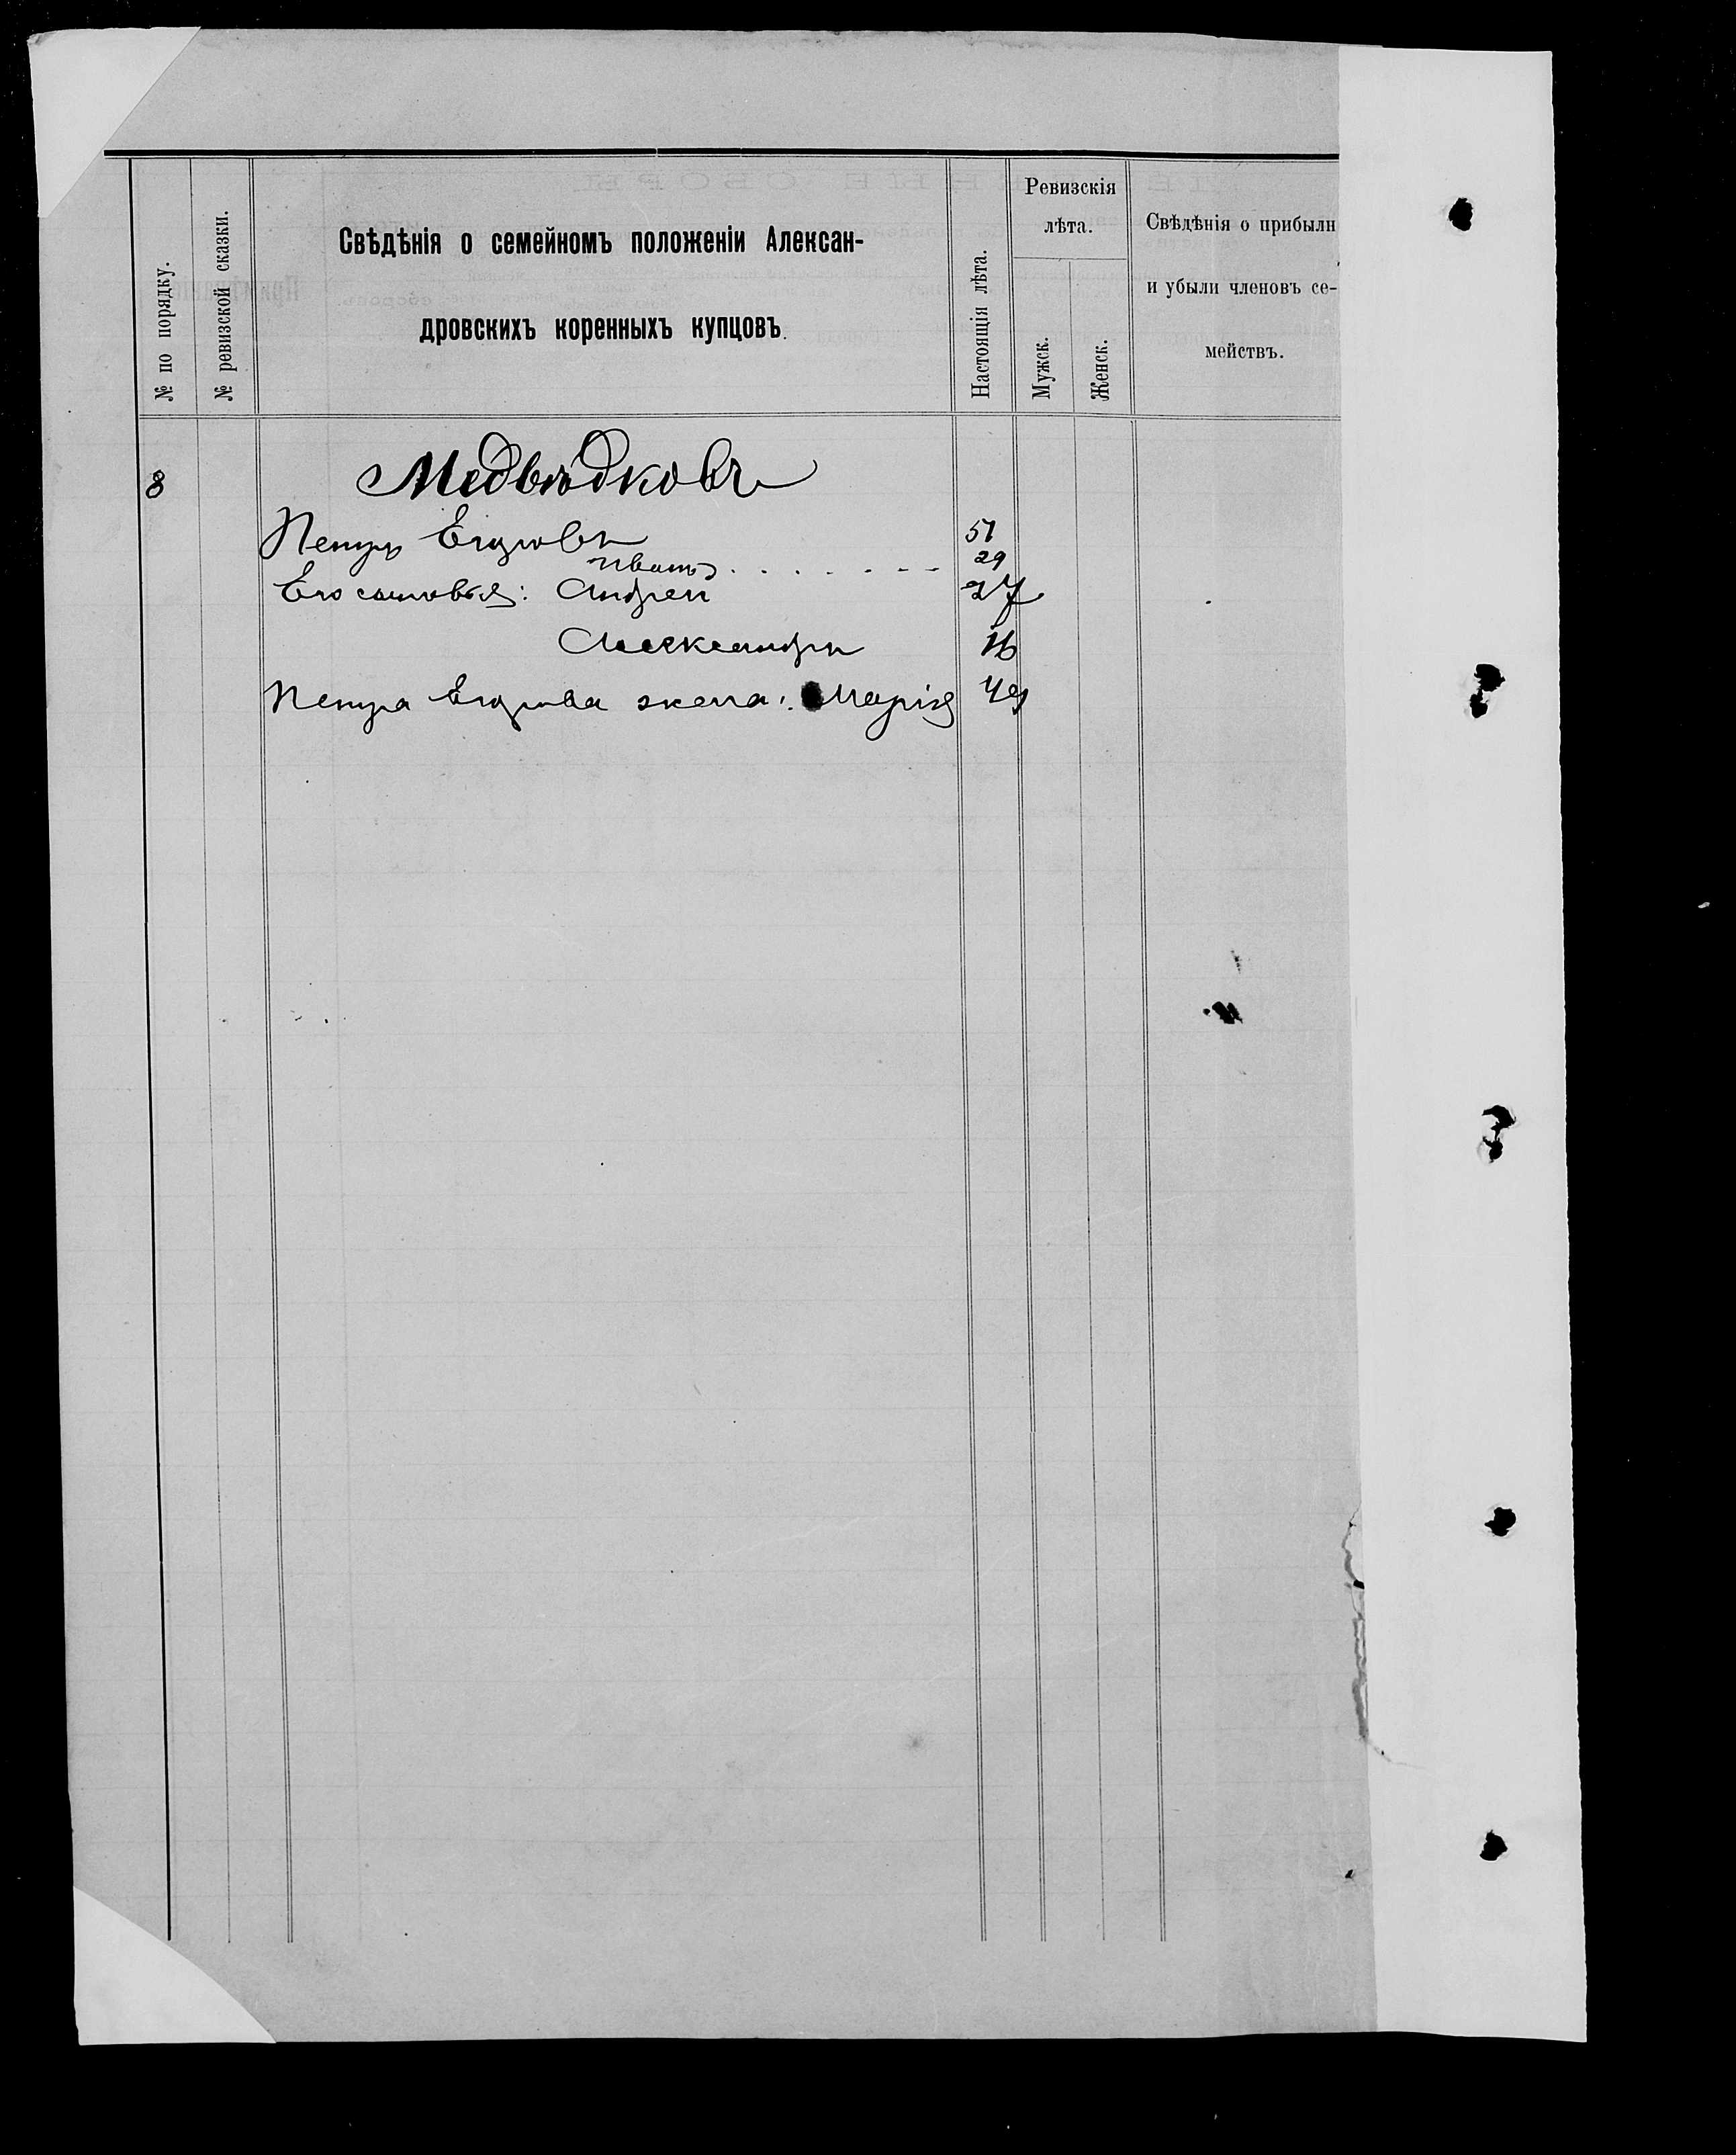 № по порядку.
№ ревизской сказки.
Свѣдѣнія о семейномъ положеніи Алексан-
дровскихъ коренныхъ купцовъ.
Настоящія лѣта.
Ревизскія
лѣта.
Мужск.
Женск.
Свѣдѣнія о прибыли
и убыли членовъ се-
мействъ.
8 Медвѣдковъ
Петръ Егоровъ 51
Иванъ 29
Его сыновья: Андрей 27
Александръ 16
Петра Егорова жена: Марія 49